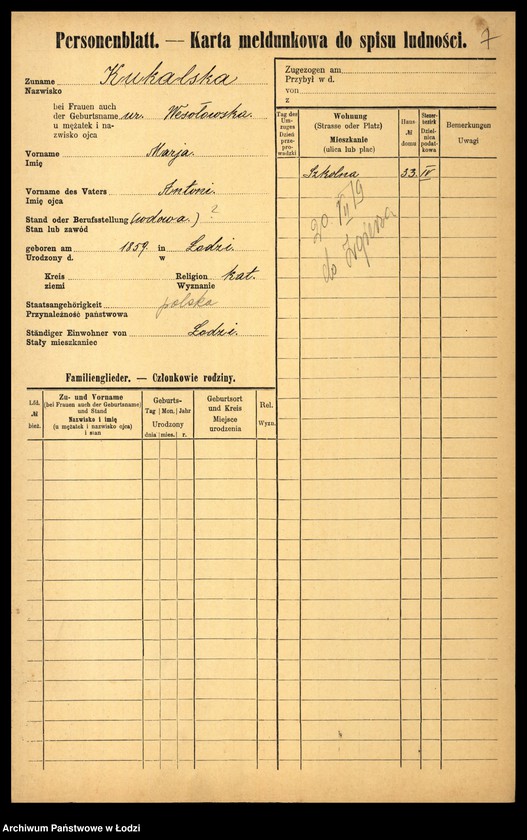 Personenblatt. — Karta meldunkowa do spisu ludności. 7
Zuname Kukalska
Nazwisko
bei Frauen auch
der Geburtsname ur. Wesołowska.
u mężatek i na-
zwisko ojca
Vorname Marja.
Imię
Vorname des Vaters Antoni.
Imię ojca
Stand oder Berufsstellung (wdowa.) ?
Stan lub zawód
geboren am 1859 in Lodzi.
Urodzony d. w
Kreis Religion kat.
ziemi Wyznanie
Staatsangehörigkeit polska
Przynależność państwowa
Ständiger Einwohner von Lodzi.
Stały mieszkaniec
Familienglieder. — Członkowie rodziny.
Lfd. № bież.
Zu- und Vorname
(bei Frauen auch der Geburtsname)
und Stand
Nazwisko i imię
(u mężatek i nazwisko ojca)
i stan
Geburts-
Tag Mon. Jahr
Urodzony
dnia mies. r.
Geburtsort
und Kreis
Miejsce
urodzenia
Rel.
Wyzn.
Zugezogen am
Przybył w d.
von
z
Tag des Um-
zuges
Dzień
prze-
prowadzki
Wohnung
(Strasse oder Platz)
Mieszkanie
(ulica lub plac)
Haus-
№
domu
Steuer-
bezirk
Dziel-
nica
podat-
kowa
Bemerkungen
Uwagi
Szkolna 33. IV
20 III 19
do Zgierza
Archiwum Państwowe w Łodzi